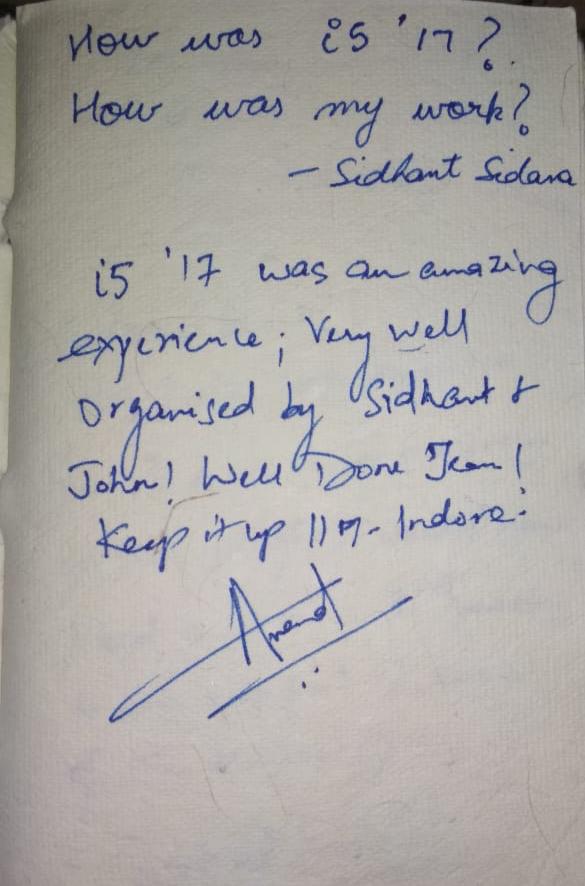 How was i5 '17?
How was my work?
- Sidhant Sidana
i5 '17 was an amazing
experience; Very well
organised by Sidhant &
John! Well Done Team!
Keep it up IIM-Indore!
Anand